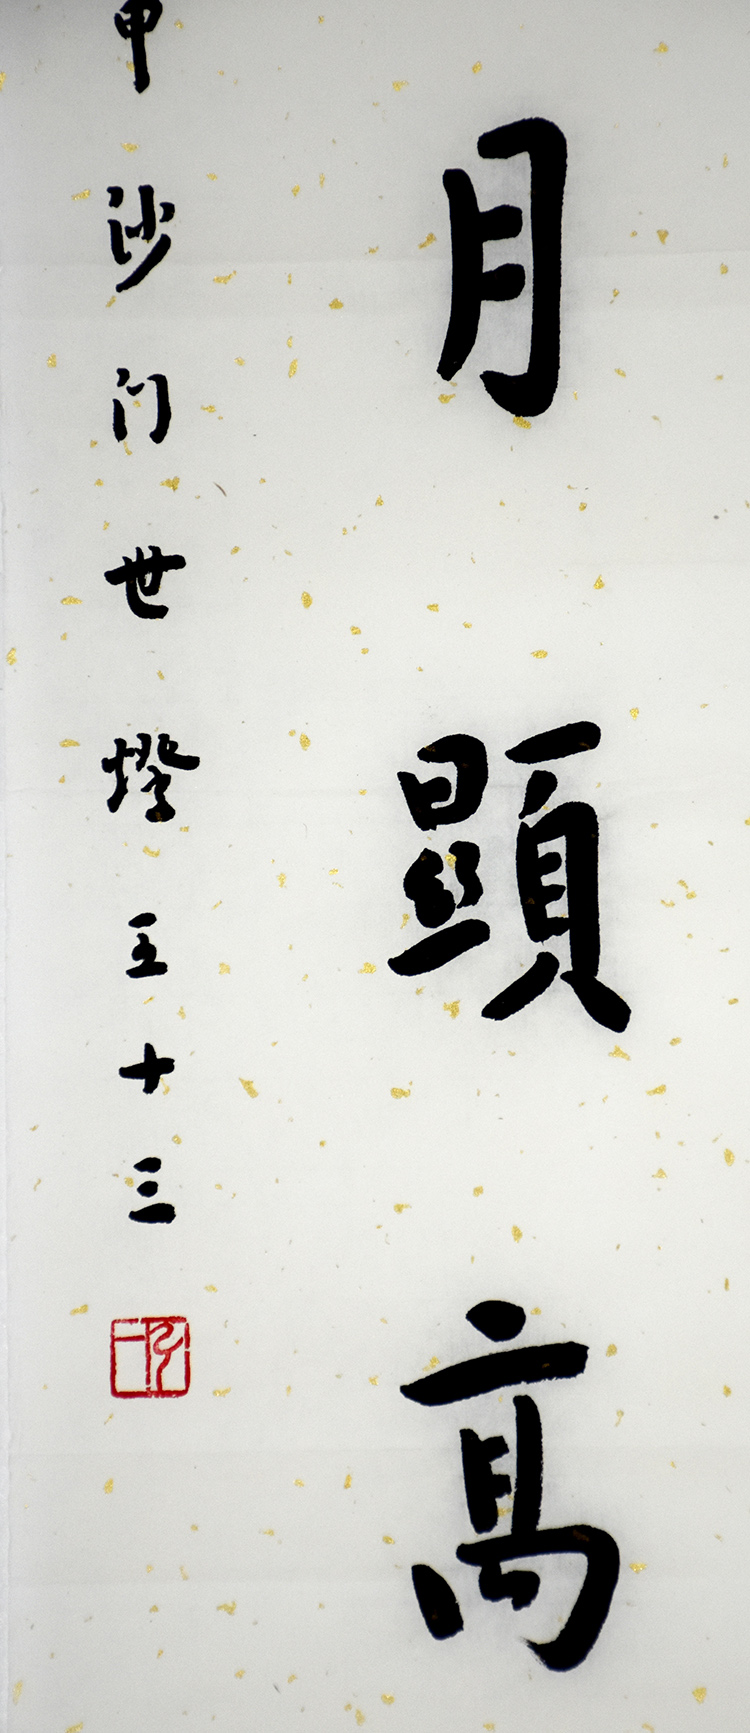 月顯高
沙门世燈五十三